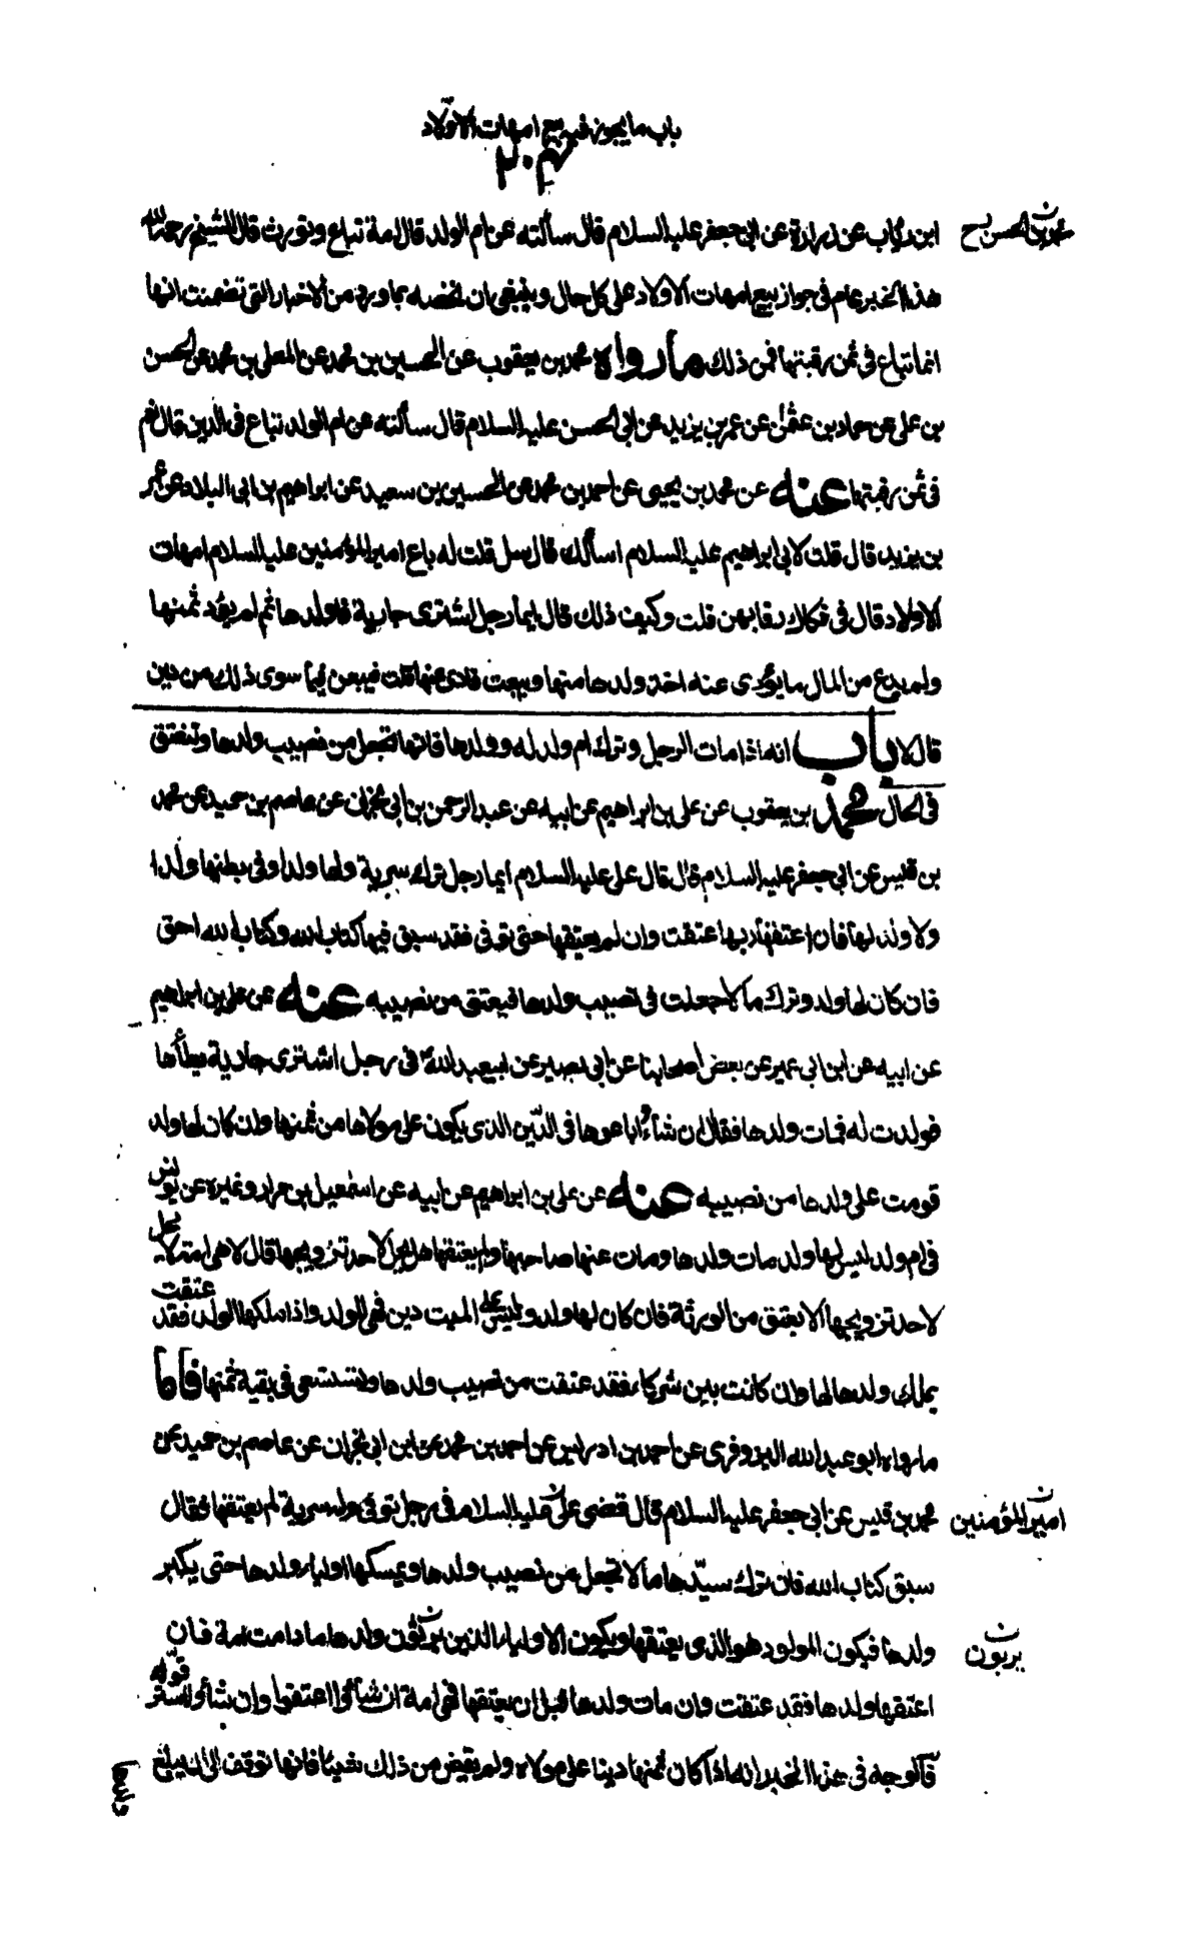 باب ما يجوز فيه بيع امهات الاولاد
ابن رئاب عن زرارة عن ابي جعفر عليه السلام قال سألته عن ام الولد قال امة تباع وتورث قال الشيخ رحمه الله
محمد بن الحسن
هذا الخبر عام في جواز بيع امهات الاولاد على كل حال وينبغي ان نخصه بما ورد من الاخبار التي تضمنت انها
انما تباع في ثمن رقبتها فمن ذلك ما رواه محمد بن يعقوب عن الحسين بن محمد عن المعلى بن محمد عن الحسن
بن علي عن حماد بن عثمن عن عمر بن يزيد عن ابي الحسن عليه السلام قال سألته عن ام الولد تباع في الدين قال نعم
في ثمن رقبتها عنه عن محمد بن يحيى عن احمد بن محمد عن الحسين بن سعيد عن ابراهيم بن ابي البلاد عن عمر
بن يزيد قال قلت لابي ابراهيم عليه السلام اسألك قال سل قلت له باع امير المؤمنين عليه السلام امهات
الاولاد قال في فكاك رقابهن قلت وكيف ذلك قال ايما رجل اشترى جارية فاولدها ثم لم يؤد ثمنها
ولم يدع من المال ما يؤدى عنه اخذ ولدها منها وبيعت فادى عنها قلت فيبعن فيما سوى ذلك من دين
قال لا باب انه اذا مات الرجل وترك ام ولد له وولدها فانها تجعل من نصيب ولدها وتنعتق
في الحال محمد بن يعقوب عن علي بن ابراهيم عن ابيه عن عبد الرحمن بن ابي نجران عن عاصم بن حميد عن محمد
بن قيس عن ابي جعفر عليه السلام قال قال علي عليه السلام ايما رجل ترك سرية ولها ولد او في بطنها ولد ا
ولا ولد لها فان اعتقها ربها عتقت وان لم يعتقها حتى توفي فقد سبق فيها كتاب الله وكتاب الله احق
فان كان لها ولد وترك مالا جعلت في نصيب ولدها فيعتق من نصيبه عنه عن علي بن ابراهيم
عن ابيه عن ابن ابي عمير عن بعض اصحابنا عن ابي بصير عن ابيعبد الله في رجل اشترى جارية يطأها
فولدت له فمات ولدها فقال ان شاءوا باعوها في الدين الذي يكون على مولاها من ثمنها وان كان لها ولد
قومت على ولدها من نصيبه عنه عن علي بن ابراهيم عن ابيه عن اسمعيل بن مرار وغيره عن يونس
في ام ولد ليس لها ولد مات ولدها ومات عنها صاحبها ولم يعتقها هل يحل لاحد تزويجها قال لا هي امة لا يحل
لاحد تزويجها الا بعتق من الورثة فان كان لها ولد وليس على الميت دين فهي للولد واذا ملكها الولد فقد عتقت
بملك ولدها لها وان كانت بين شركاء فقد عتقت من نصيب ولدها وتستسعى في بقية ثمنها فاما
ما رواه ابو عبد الله البزوفري عن احمد بن ادريس عن احمد بن محمد عن ابن ابي نجران عن عاصم بن حميد عن
محمد بن قيس عن ابي جعفر عليه السلام قال قضى علي عليه السلام في رجل توفي وله سرية لم يعتقها فقال
امير المؤمنين
سبق كتاب الله فان ترك سيدها مالا تجعل من نصيب ولدها ويمسكها اولياء ولدها حتى يكبر
ولدها فيكون المولود هو الذي يعتقها ويكون الاولياء الذين يرثون ولدها ما دامت امة فان
يربون
اعتقها ولدها فقد عتقت وان مات ولدها قبل ان يعتقها فهي امة ان شاءوا اعتقوا وان شاءوا استرقوا
فالوجه في هذا الخبر انه اذا كان ثمنها دينا على مولاه ولم يقض من ذلك شيئا فانها توقف الى ان يبلغ